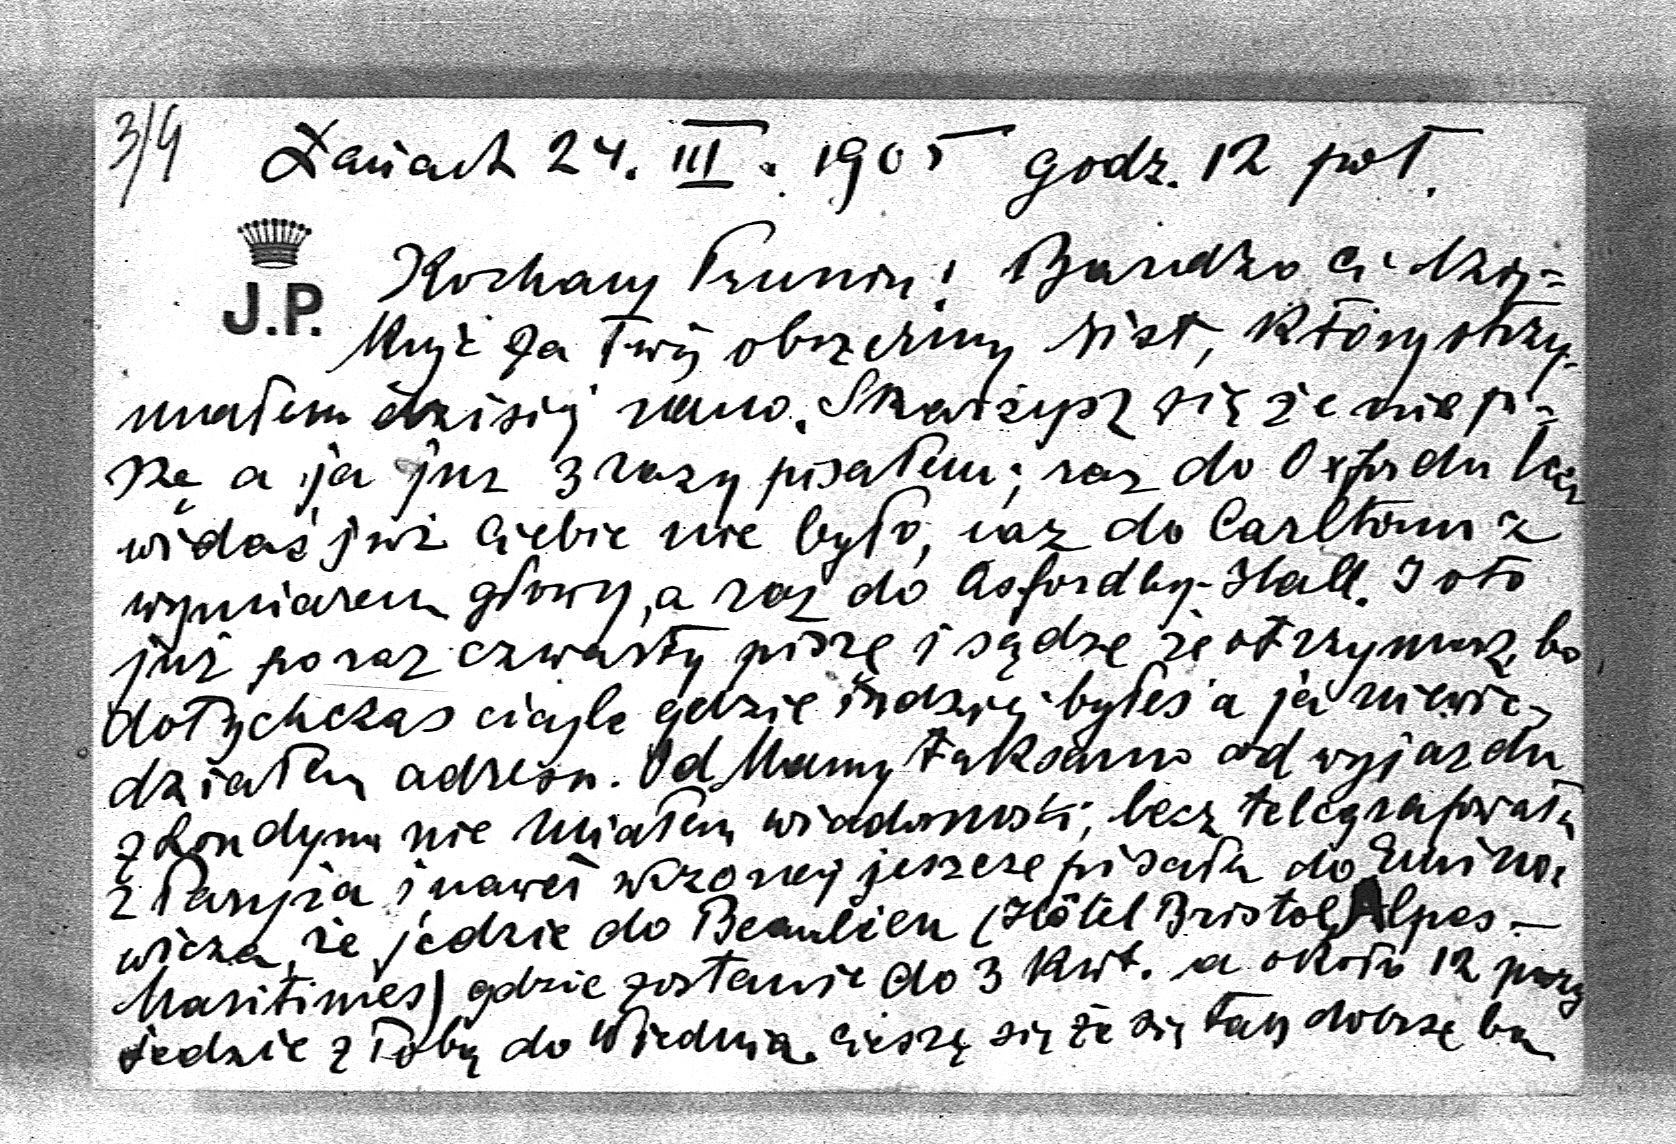 3/4
Łańcuch 24. III. 1905 godz. 12 poł.
J.P.
Kochany ! Bardzo Ci dzię-
kuję za Twój obszerny list, który otrzy-
małem dzisiej rano. Skarżysz się że nie pi-
szę a ja już 3 razy pisałem; raz do Oxfordu lecz
widać już Ciebie nie było, raz do Carltonu z
wymiarem głowy, a raz do Asfordby-Hall. I oto
już poraz czwarty piszę i sądzę że otrzymasz, bo
dotychczas ciągle gdzie indziej byłeś a ja niewie-
działem adresu. Od Mamy taksamo od wyjazdu
z Londynu nie miałem wiadomości, lecz telegrafowała
z Paryża i nawet wczoraj jeszcze pisała do
wicza, że jedzie do Beaulieu (Hôtel Bristol, Alpes-
Maritimes) gdzie zostanie do 3 kwt. a około 12 przy
jedzie z Tobą do Wiednia. Cieszę się że się tam dobrze ba